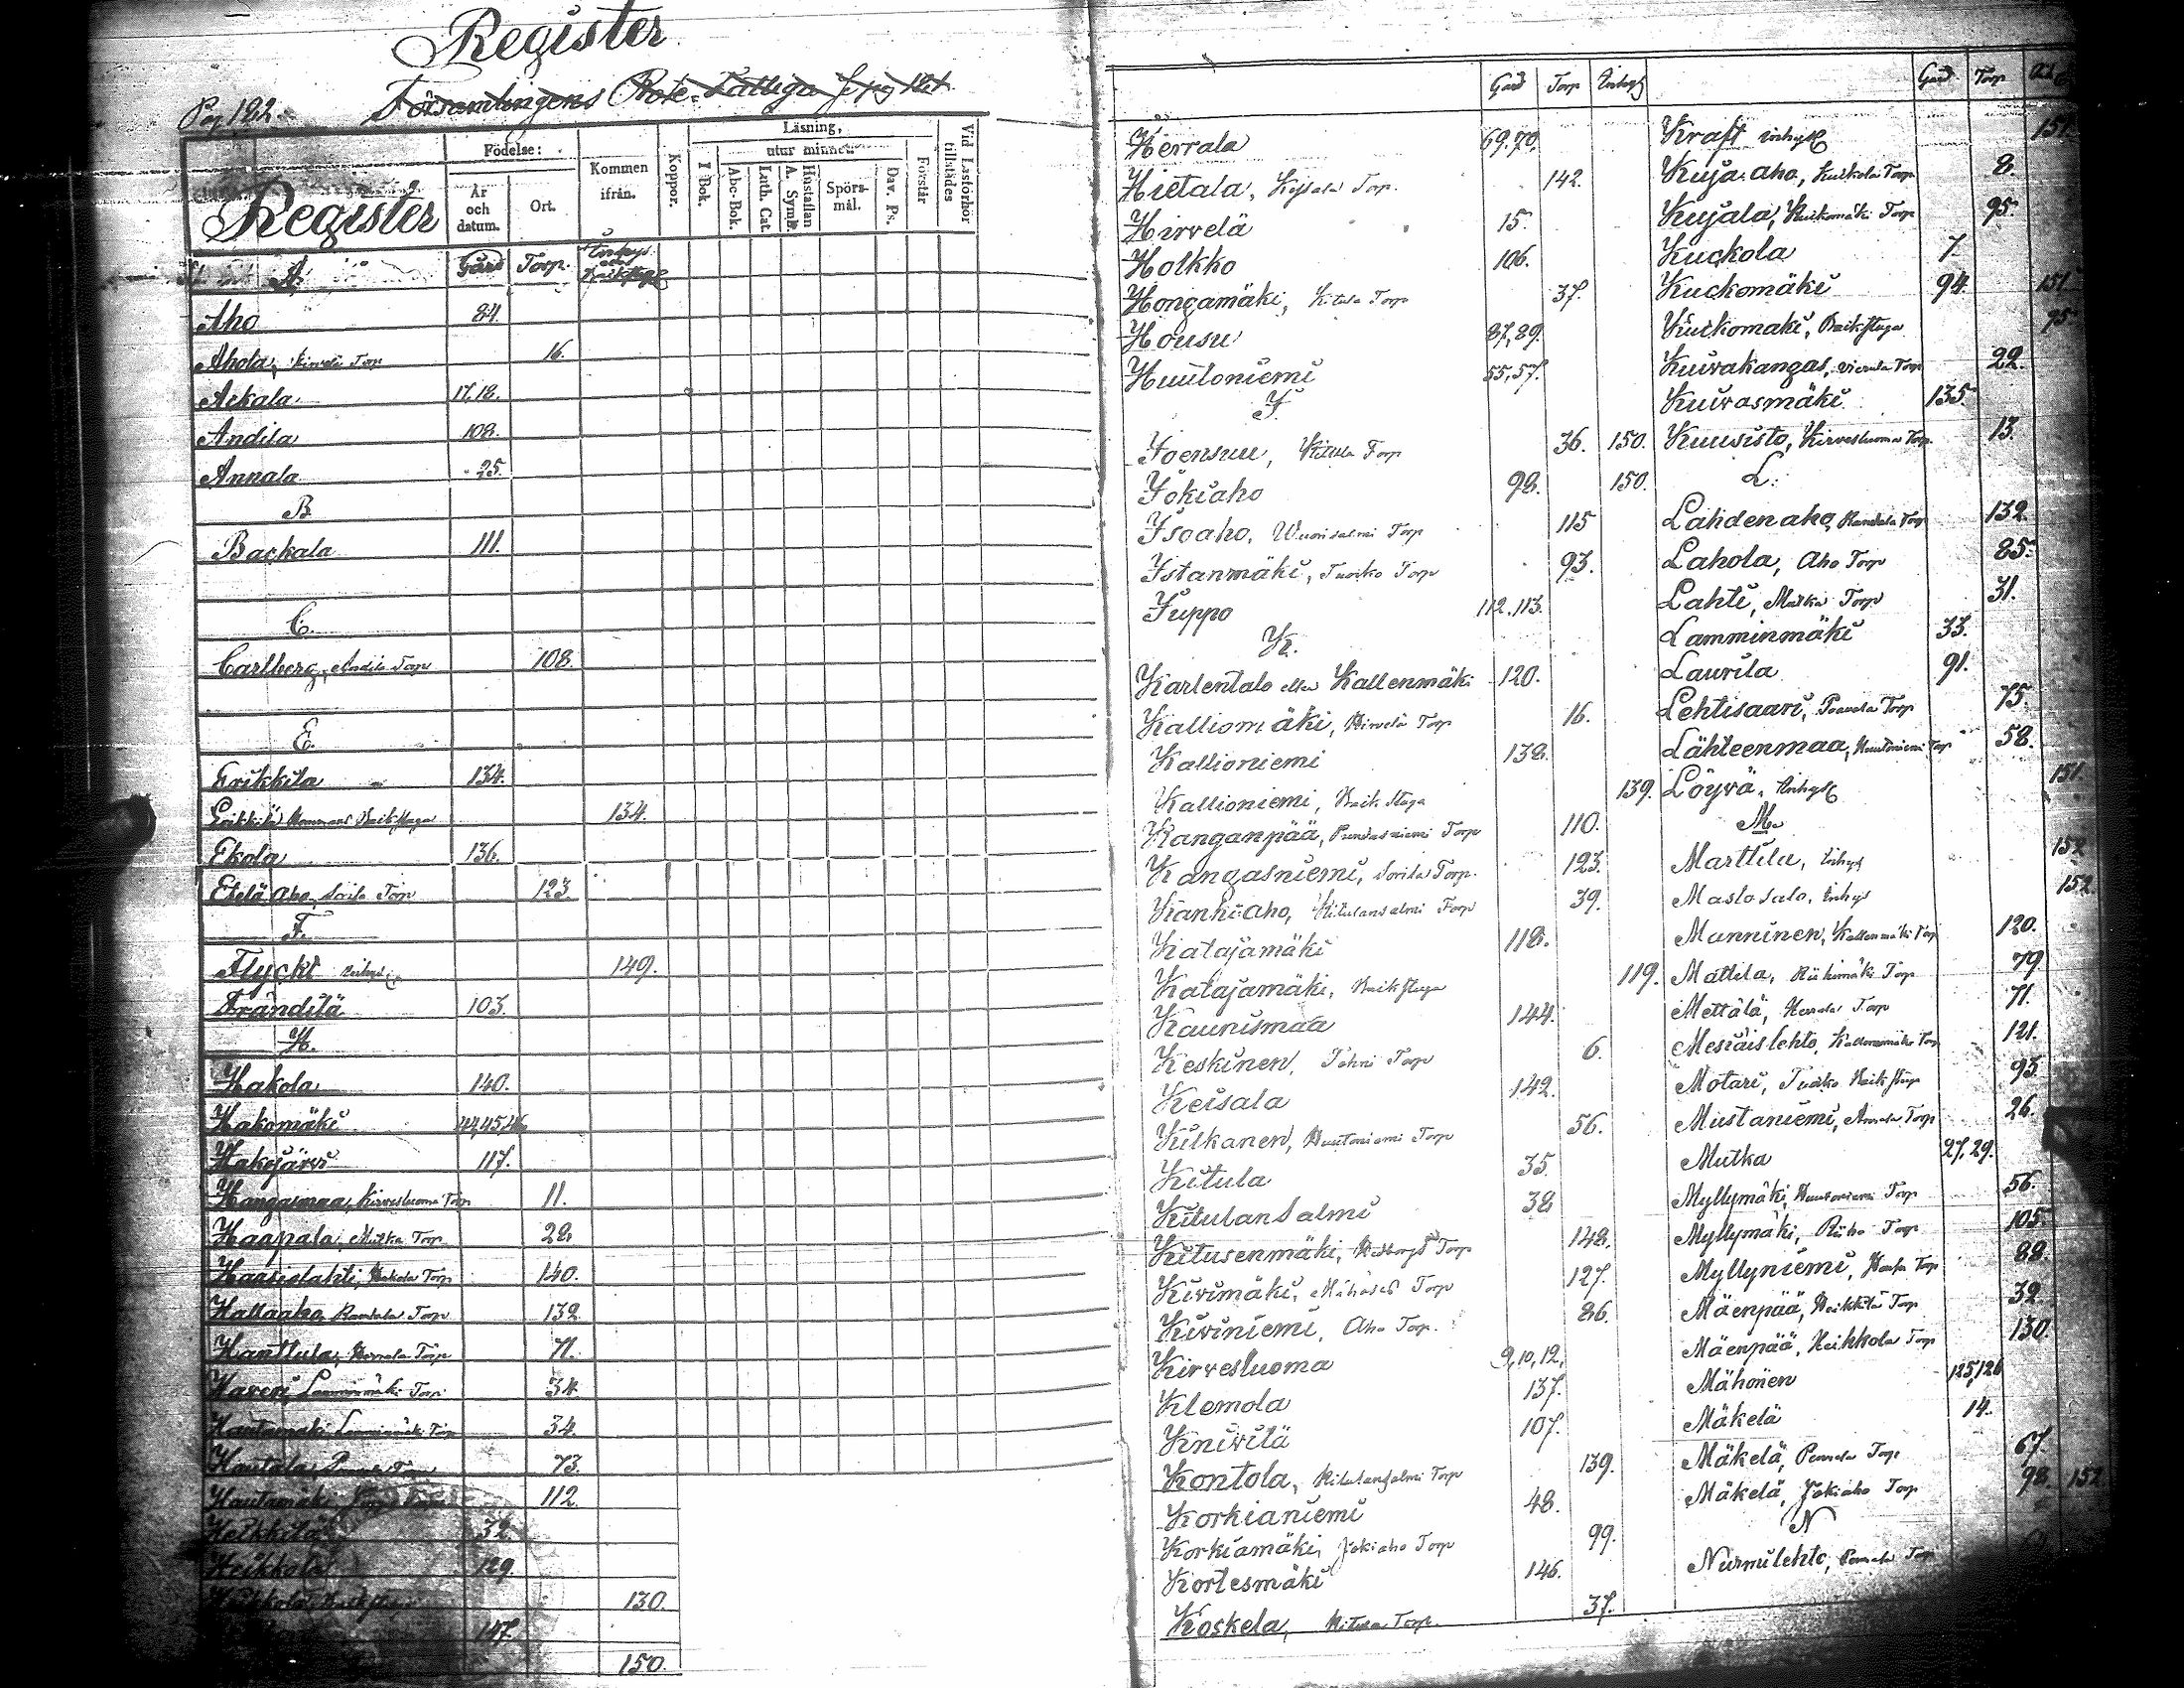 Register
Pag 122. Församlingens
Register
Födelse:
År och datum.
Ort.
Kommen ifrån.
Koppor.
Läsning,
utur minnet.
I Bok.
Abc-Bok.
Luth. Cat.
A. Symb.
Hustaflan
Spörs-mål.
Dav. Ps.
Förstår
Vid Läsförhör tillstädes
A. Gård Torp. Inhys och Backstuga
Aho 84.
Ahola, Hirvelä Torp 16.
Aikala 17,18.
Andila 108.
Annala 25.
B
Backala 111.
C.
Carlberg, Andila Torp 108.
E.
Erikkila 134.
Erikkilä Backstuga 134.
Ekola 136.
Etelä Aho, Sorila Torp 123.
F.
Flyckt Inhys 149.
Frändilä 103.
H.
Hakola 140.
Hakomäki 44,45,46
Hakojärvi 117.
Hangasmaa, Kirvesluoma Torp 11.
Haapala, Mutka Torp 28.
Haapalahti, Hakola Torp 140.
Hallaaho, Randala Torp 132.
Hanttula, Herrala Torp 71.
Haveri, Lamminmäki Torp 34.
Hautamäki Lamminmäki Torp 34.
Hautala, Torp 73.
Hautamäki, Juppo Torp 112.
Heikkilä 32.
Heikkola 129.
Heikkola Backstuga 130.
147.
150.
Gård Torp Inhys
Herrala 69,70.
Hietala, Keisala Torp. 142.
Hirvelä 15.
Holkko 106.
Hongamäki, Kitula Torp 37.
Housu 87,89.
Huutoniemi 55,57.
J.
Joensuu, Kitula Torp 36. 150.
Jokiaho 98. 150.
Isoaho, Wuorisalmi Torp 115
Istanmäki, Tuorko Torp 93.
Juppo 112.113.
K.
Karlentalo eller Kallenmäki 120.
Kalliomäki, Hirvelä Torp 16.
Kallioniemi 138.
Kallioniemi, Backstuga 139.
Kanganpää, Torp 110.
Kangasniemi, Sorila Torp. 123.
Kankiaho, Kitulansalmi Torp 39.
Katajamäki 118.
Katajamäki, Backstuga 119.
Kaunismaa 144.
Keskinen, Torp 6.
Keisala 142.
Kulkanen, Huutoniemi Torp 56.
Kitula 35.
Kitulansalmi 38
Kitusenmäki, Torp 148.
Kivimäki, Mähönen Torp 127.
Kiviniemi, Aho Torp. 86.
Kirvesluoma 9,10,12,
Klemola 137.
Knivilä 107.
Kontola, Kitulansalmi Torp 139.
Korkianiemi 48.
Korkiamäki, Jokiaho Torp 99.
Kortesmäki 146.
Koskela, Kitula Torp. 37.
Gård Torp
Kraft inhys 151.
Kujaaho, Kuckola Torp 8.
Kujala, Kuckomäki Torp 95.
Kuckola 7.
Kuckomäki 94. 151.
Kuckomäki, Backstuga 95
Kuivakangas, Vierula Torp 22.
Kuivasmäki 135.
Kuusisto, Kirvesluoma Torp. 13.
L.
Lahdenaho, Randala Torp 132.
Lahola, Aho Torp 85.
Lahti, Mutka Torp 31.
Lamminmäki 33.
Laurila 91.
Lehtisaari, Torp 75.
Lähteenmaa, Huutoniemi Torp 58.
Löyvä, Inhys 151.
M.
Marttila, Inhys 152
Maslosalo, Inhys 152.
Manninen, Kallenmäki Torp 120.
Mattila, Riihimäki Torp 79
Mettälä, Herrala Torp 71.
Mesiäislehto, Kallenmäki Torp 121.
Motari, Tuorko Backstuga 93.
Mustaniemi, Annala Torp 26.
Mutka 27,29.
Myllymäki, Huutoniemi Torp 56.
Myllymäki, Riiho Torp 105.
Myllyniemi, Housu Torp 88.
Mäenpää, Heikkilä Torp 32.
Mäenpää, Heikkola Torp 130.
Mähönen 125,126
Mäkelä 14.
Mäkelä, Torp 67.
Mäkelä, Jokiaho Torp 98. 152.
N
Nurmilehto, Torp